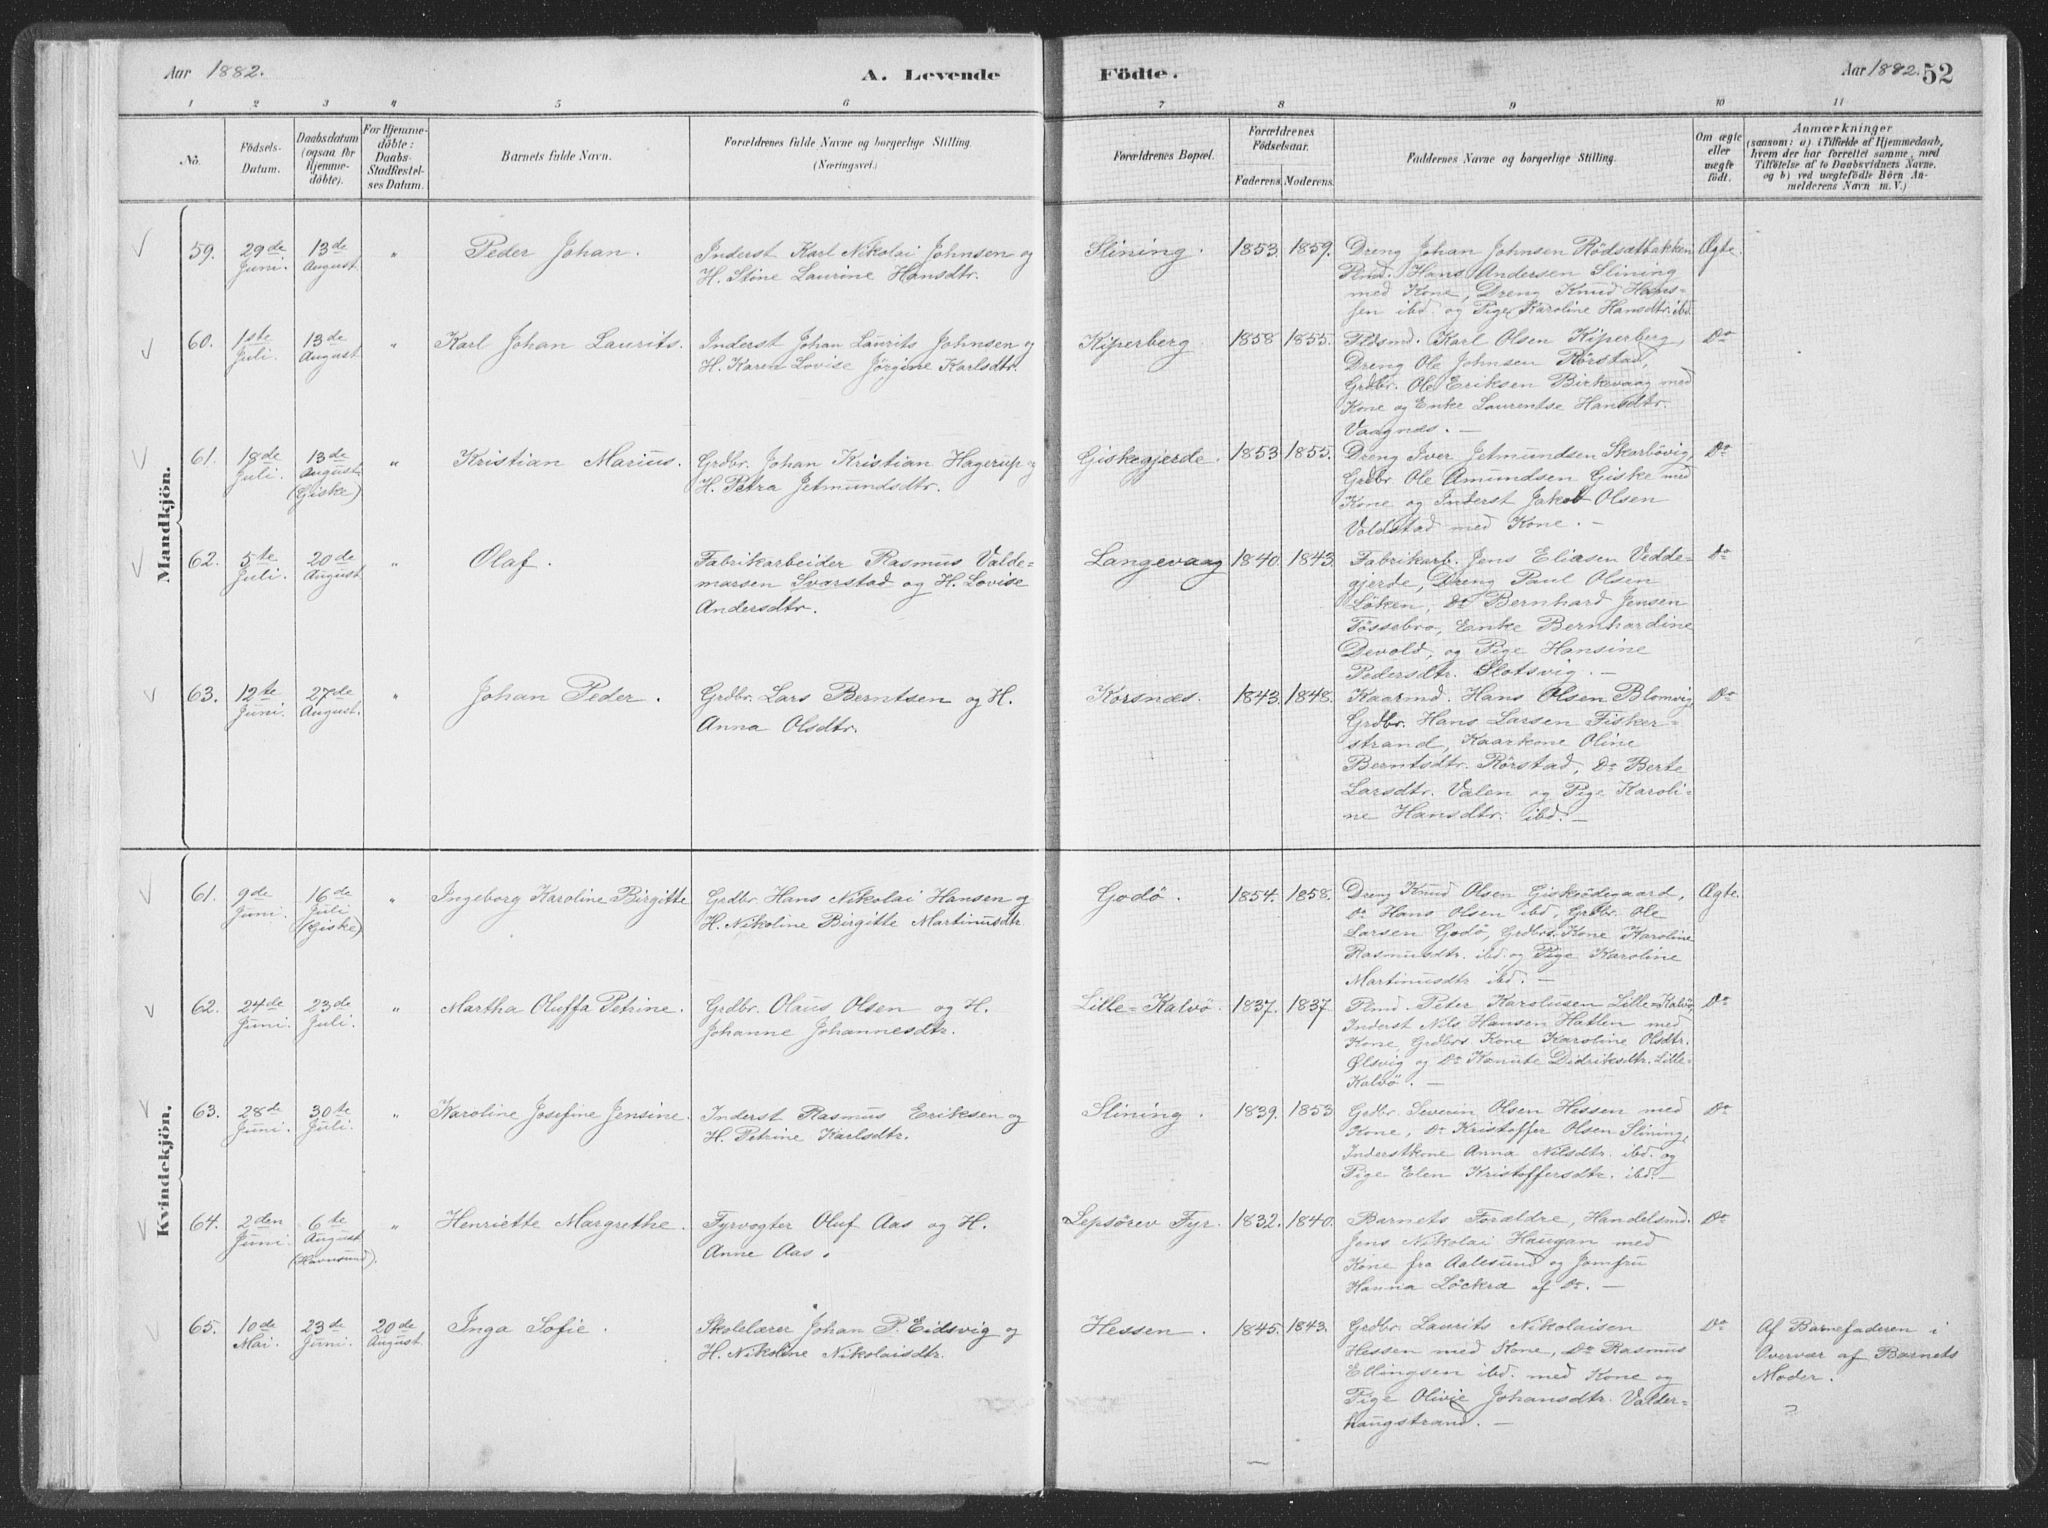 Aar 1882.
A. Levende Födte.
Aar 1882. 52
1 2 3 4 5 6 7 8 9 10 11
No.
Födsels-
Datum.
Daabsdatum
(ogsaa for
Hjemme-
döbte).
For Hjemme-
döbte:
Daabs-
Stadfæstel-
ses Datum.
Barnets fulde Navn.
Forældrenes fulde Navne og borgerlige Stilling.
(Næringsvei.)
Forældrenes Bopæl.
Forældrenes
Födselsaar.
Faderens. Moderens.
Faddernes Navne og borgerlige Stilling.
Om ægte
eller
uægte
födt.
Anmærkninger
(saasom: a) i Tilfælde af Hjemmedaab,
hvem der har forrettet samme, med
Tilföielse af to Daabsvidners Navne.
og b) ved uægtefödte Börn An-
melderens Navn m. V.)
Mandkjön.
59.
29de
Juni.
13de
August.
"
Peder Johan.
Inderst Karl Nikolai Johnsen og
H. Stine Laurine Hansdtr.
Slining.
1853. 1859.
Dreng Johan Johnsen Rödsætbakken
Plmd. Hans Andersen Slining
med Kone, Dreng Knud Hans-
sen ibd. og Pige Karoline Hansdtr. ibd.
Ægte.
60.
1ste
Juli.
13de
August
"
Karl Johan Laurits.
Inderst Johan Laurits Johnsen og
H. Karen Lovise Jörgine Karlsdtr.
Kiperberg.
1858 1855.
Pldsmd. Karl Olsen Kiperberg,
Dreng Ole Johnsen Rörstad,
Grdbr. Ole Eriksen Birkevaag med
Kone og Enke Laurentse Hansdtr.
Vaagnes. —
Do
61.
18de
Juli.
13de
August
(Giske)
"
Kristian Marius.
Grdbr. Johan Kristian Hagerup og
H. Petra Jetmundsdtr.
Giskegjerde.
1853 1855.
Dreng Iver Jetmundsen Skarbövig,
Grdbr. Ole Amundsen Giske med
Kone og Inderst Jakob Olsen
Voldstad med Kone. —
Do
62.
5te
Juli.
20de
August
"
Olaf.
Fabrikarbeider Rasmus Valde-
marsen Svarstad og H. Lovise
Andersdtr.
Langevaag
1840. 1843.
Fabrikarb. Jens Eliasen Vedde-
gjerde, Dreng Paul Olsen
Löken, Do Bernhard Jensen
Fössebro, Enke Bernhardine
Devold, og Pige Hansine
Pedersdtr. Slotsvig. —
Do
63.
12te
Juni.
27de
August.
"
Johan Peder.
Grdbr. Lars Berntsen og H.
Anna Olsdtr.
Korsnes.
1843. 1848.
Kaarmd. Hans Olsen Blomvig
Grdbr. Hans Larsen Fisker-
strand, Kaarkone Oline
Berntsdtr. Rörstad, Do Berte
Larsdtr. Valen og Pige Karoli-
ne Hansdtr. ibd. —
Do
Kvindekjön.
61.
9de
Juni.
16de
Juli
(Giske)
"
Ingeborg Karoline Birgitte
Grdbr. Hans Nikolai Hansen og
H. Nikoline Birgitte Martinusdtr
Godö.
1854. 1858.
Dreng Knud Olsen Giskeödegaard,
Do Hans Olsen ibd, Grdbr. Ole
Larsen Godö, Grdbrs. Kone Karoline
Rasmusdtr. ibd. og Pige Karoline
Martinusdtr ibd. —
Ægte.
62.
24de
Juni.
23de
Juli.
"
Martha Oluffa Petrine.
Grdbr. Olaus Olsen og H.
Johanne Johannesdtr.
Lille=Kalvö.
1837. 1837
Plmd. Peter Karolusen Lille=Kalvö,
Inderst Nils Hansen Hatlen med
Kone, Grdbrs. Kone Karoline Olsdtr.
Ølsvig og Do Kanute Didriksdtr. Lille-
Kalvö. —
Do
63.
28de
Juni.
30te
Juli.
"
Karoline Josefine Jensine.
Inderst Rasmus Eriksen og
H. Petrine Karlsdtr.
Slining.
1839. 1853
Grdbr. Severin Olsen Hessen med
Kone, Do Kristoffer Olsen Slining,
Inderstkone Anna Nilsdtr. ibd. og
Pige Elen Kristoffersdtr. ibd. —
Do
64.
2den
Juni.
6te
August
(Havnsund).
"
Henriette Margrethe.
Fyrvogter Oluf Aas og H.
Anne Aas.
Lepsörev Fyr.
1832. 1840.
Barnets Forældre, Handelsmd.
Jens Nikolai Haugan med
Kone fra Aalesund og Jomfru
Hanna Löckra af Do. —
Do
65.
10de
Mai.
23de
Juni.
20de
August.
Inga Sofie.
Skolelærer Johan P. Eidsvig og
H. Nikoline Nikolaisdtr.
Hessen.
1845. 1843.
Grdbr. Laurits Nikolaisen
Hessen med Kone, Do Rasmus
Ellingsen ibd. med Kone og
Pige Olivie Johansdtr. Valder-
haugstrand. —
Do
Af Barnefaderen i
Overvær af Barnets
Moder.